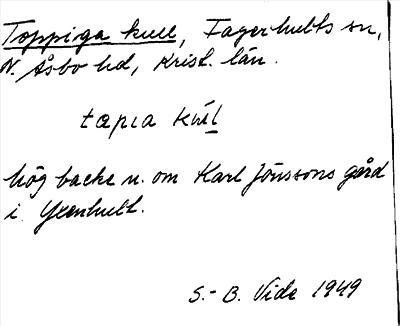 Toppiga kull, Fagerhults sn,
N. Åsbo hd, Krist. län.
tɑpıɑ kɯl
hög backe n. om Karl Jönssons gård
i Yxenhult.
S.-B. Vide 1949